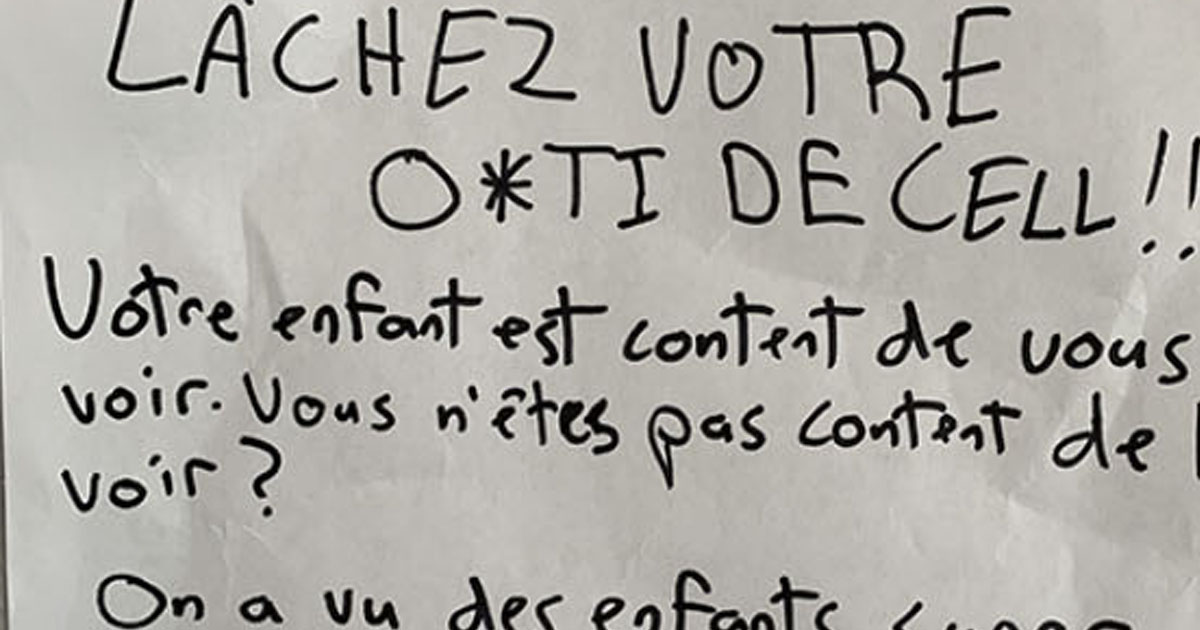 LÂCHEZ VOTRE
O*TI DE CELL!!
Votre enfant est content de vous
voir. Vous n'êtes pas content de
voir?
On a vu des enfants